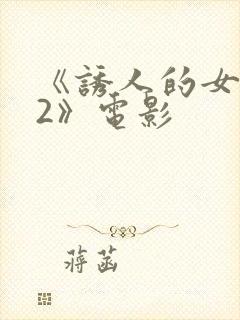 《誘人的女
2》電影
蔣菡